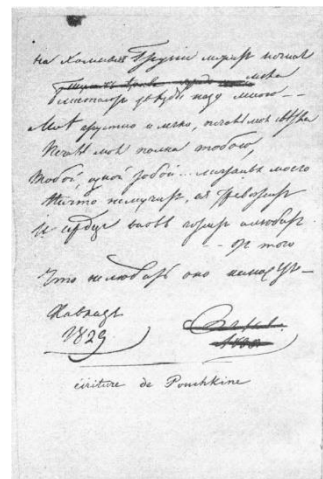 На холмахъ Грузіи лежитъ ночная
мгла
блистаютъ звѣзды надо мною --
Мнѣ грустно и легко, печаль моя свѣтла
Печаль моя полна тобою,
Тобой, одной тобой... моего
Ничто не мучитъ, не тревожитъ
И сердце вновь горитъ и любитъ
-- отъ того
Что не любить оно не можетъ --
Кавказъ
1829
écriture de Poushkine